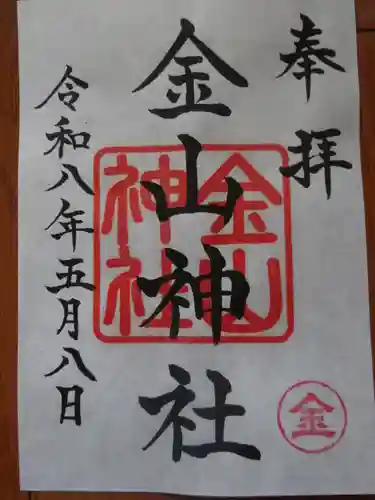 奉拝
金山神社
令和八年五月八日
金山神社
金